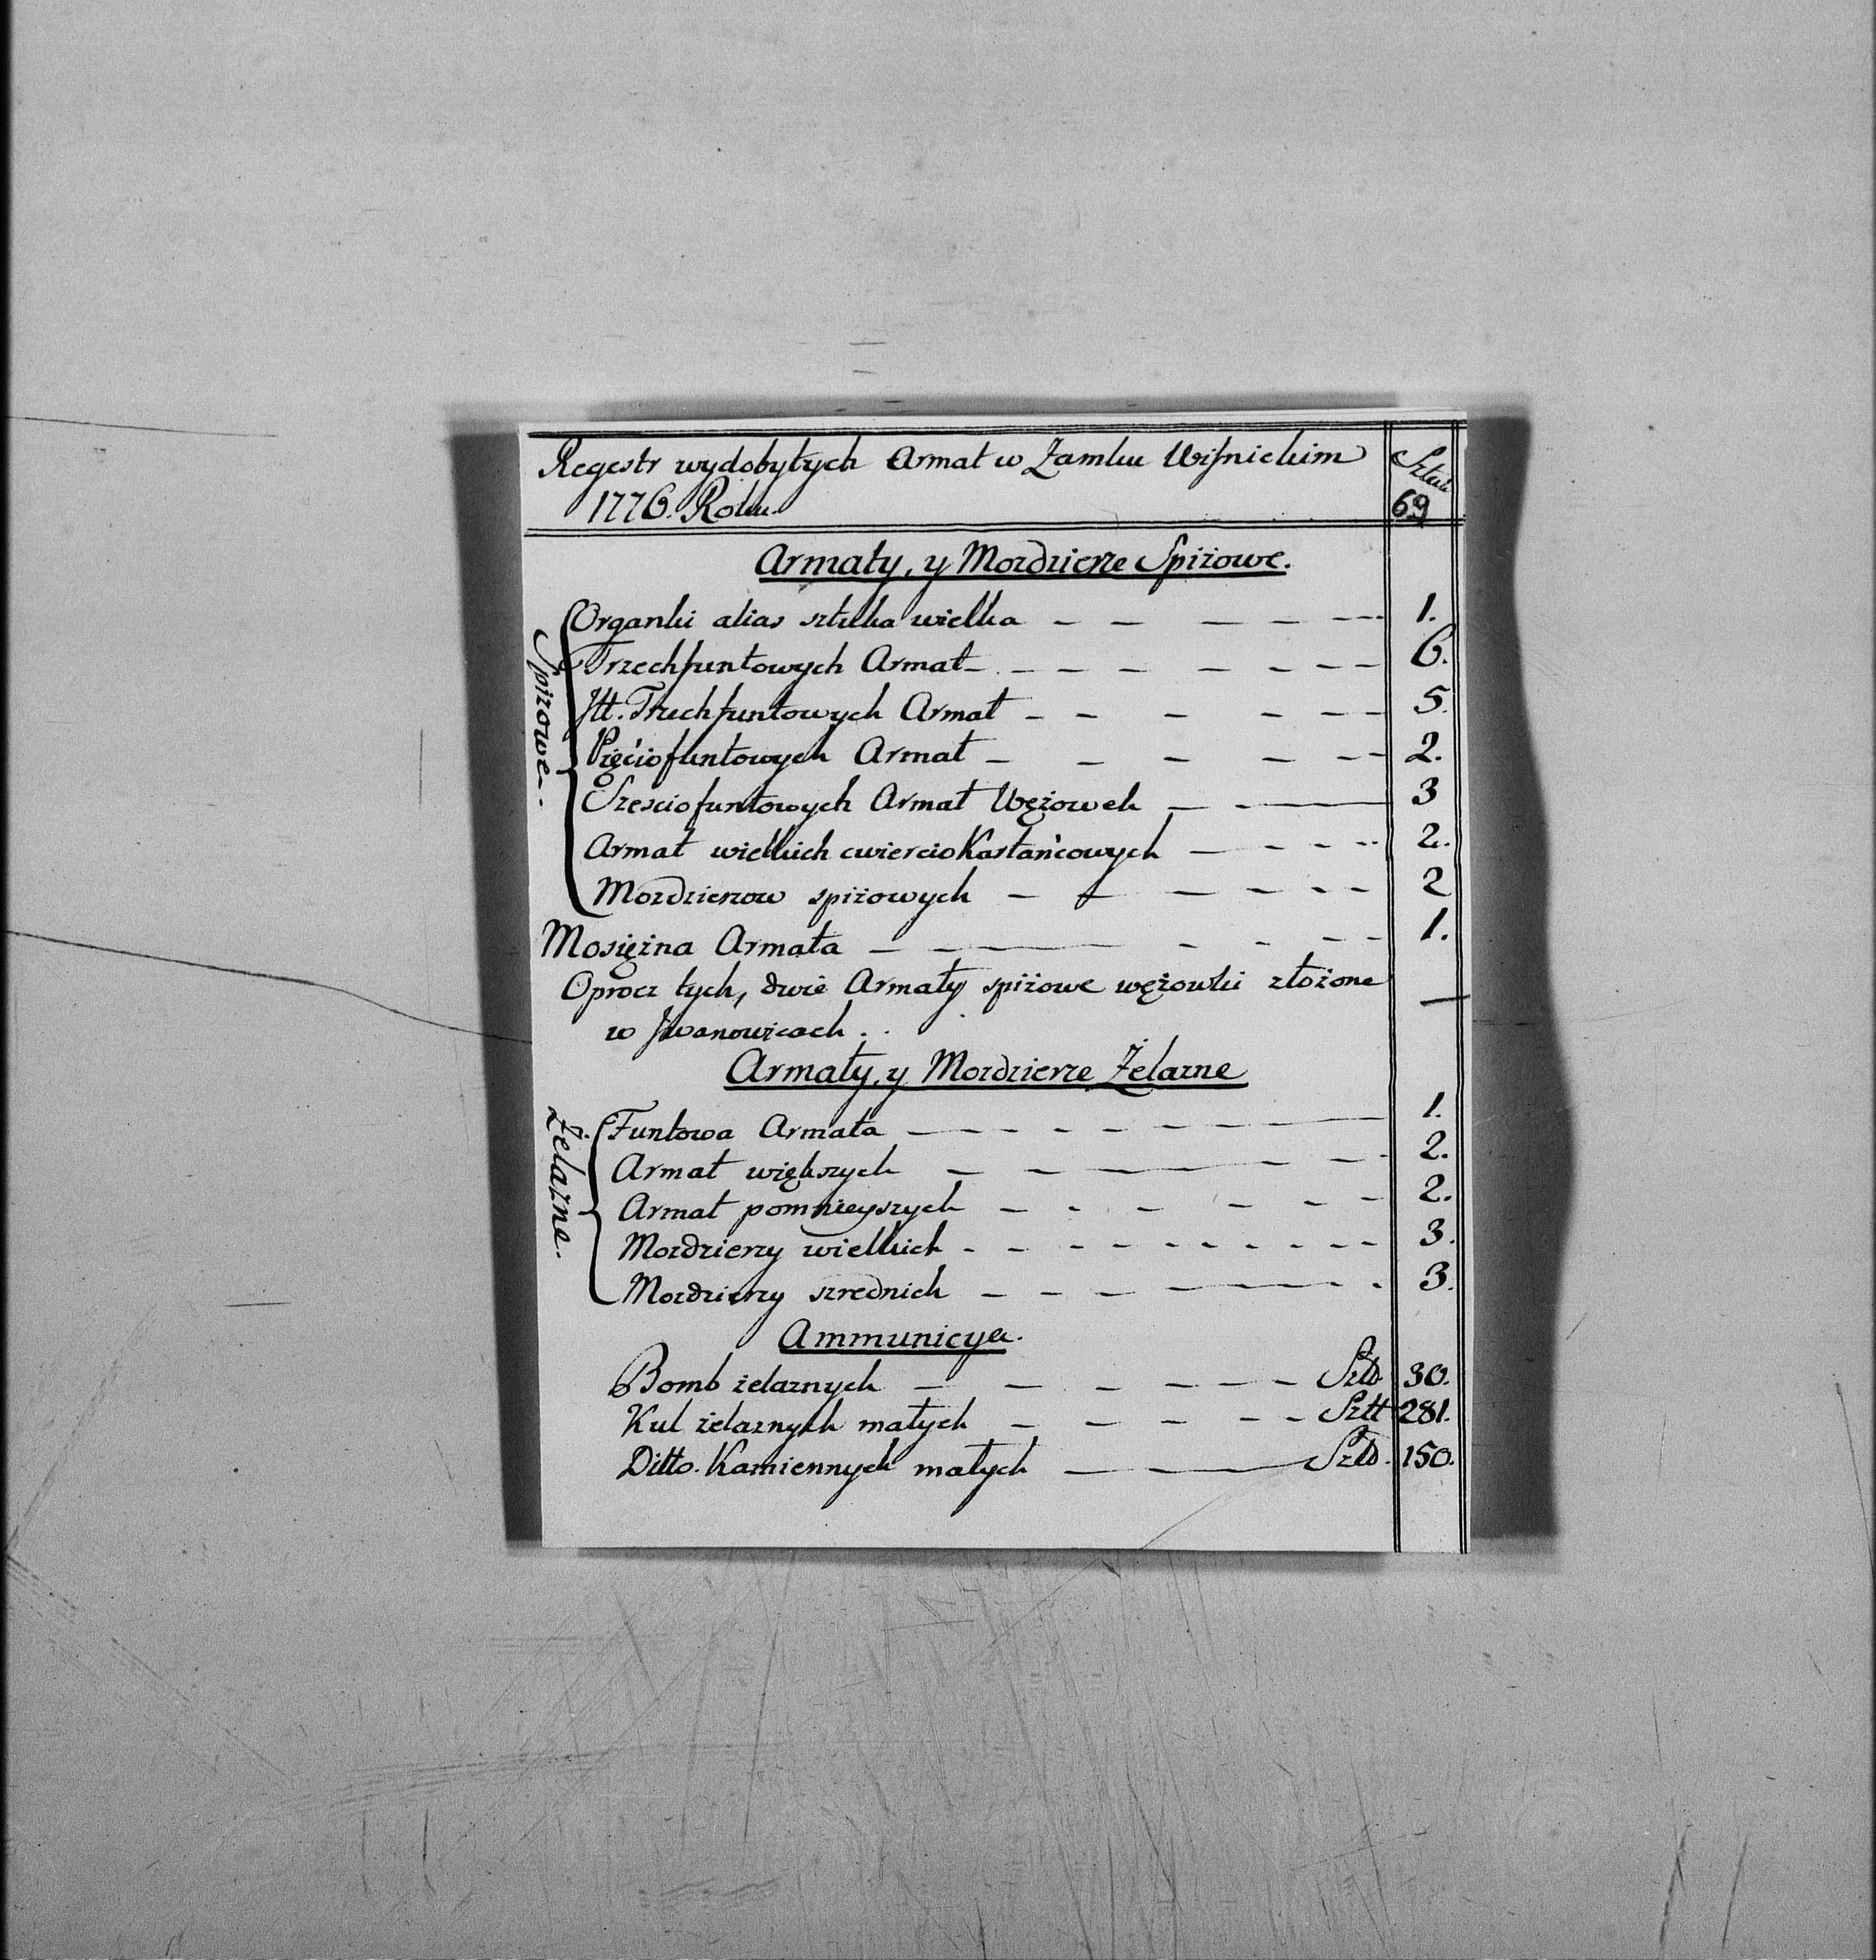 Regestr wydobytych Armat w Zamku Wiśnickim
1776. Roku.
Sztuk
69
Armaty, y Mozdzierze Spiżowe.
Spiżowe.
Organki alias sztuka wielka 1.
Trzechfuntowych Armat 6.
Itt. Trzechfuntowych Armat 5.
Pięciofuntowych Armat 2.
Szesciofuntowych Armat Wężowek 3
Armat wielkich cwiercio Kartańcowych 2.
Mozdzierzow spiżowych 2
Mosiężna Armata 1.
Oprocz tych, dwie Armaty spiżowe wężowki złożone
w Iwanowicach.
Armaty, y Mozdzierze Żelazne
Żelazne.
Funtowa Armata 1.
Armat większych 2.
Armat pomnieyszych 2.
Mozdzierzy wielkich 3.
Mozdzierzy szrednich 3.
Ammunicya.
Bomb żelaznych Sztt 30.
Kul żelaznych małych Sztt 281.
Ditto. Kamiennych małych Sztt. 150.